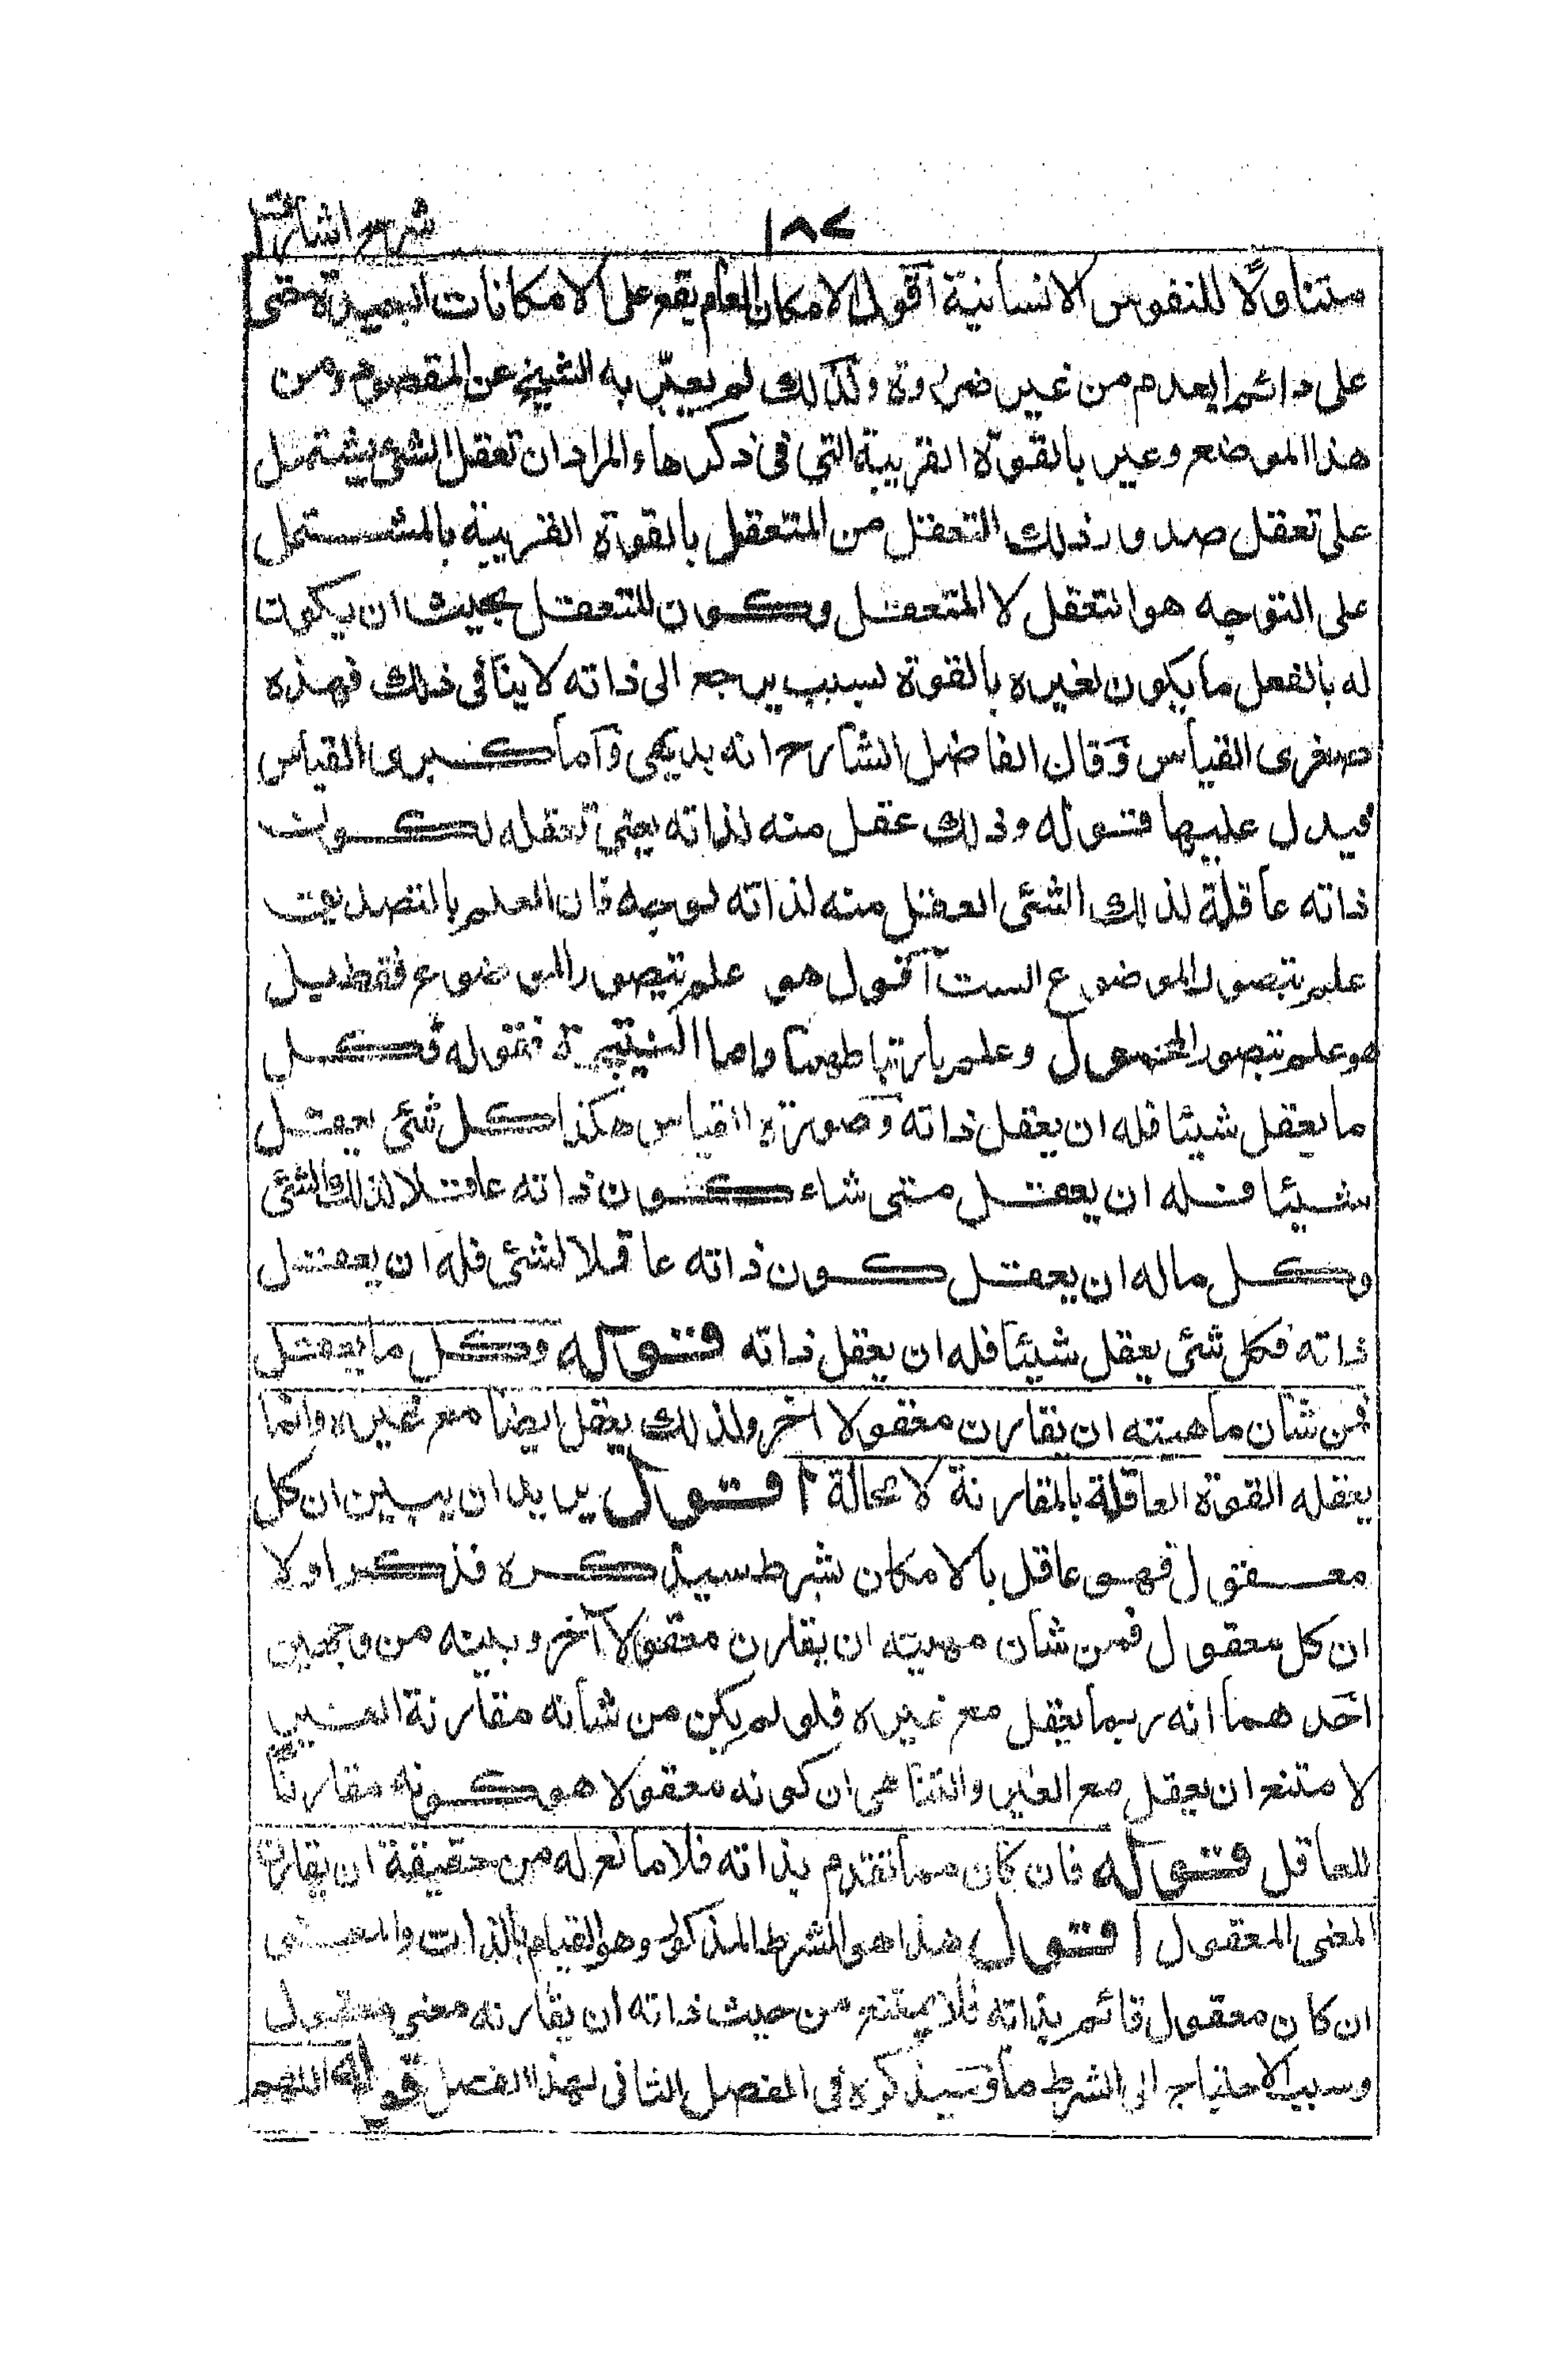 ١٨٢ شرح اشارات
متناولًا للنفوس الانسانية اقول الامكان العام يقع على الامكانات البعيدة حتى
على دائم العدم من غير ضرورة ولذلك لم يعبّر به الشيخ عن المقصود من
هذا الموضع وعبر بالقوّة القريبة التي فى ذكرها والمراد ان تعقل الشئ يشتمل
على تعقل صدور ذلك التعقل من المتعقل بالقوة القريبة بالمشتمل
على التوجه هو التعقل لا المتعقل وكون للتعقل بحيث ان يكون
له بالفعل ما يكون لغيره بالقوة بسبب يرجع الى ذاته لا ينافى ذلك فهذه
صغرى القياس وقال الفاضل الشارح انه بديهى وآما كبرى القياس
فيدل عليها قوله وذلك عقل منه لذاته يعنى تعقله لكون
ذاته عاقلة لذلك الشئ العقل منه لذاته لوجه فان العلم بالتصديق
علم بتصور الموضوع الست آقول هو علم بتصور الموضوع فقط بل
هو علم بتصور المحمول وعلم بارتباطهما واما النتيجة فقوله فكل
ما يعقل شيئا فله ان يعقل ذاته وصورة القياس هكذا كل شئ يعقل
شيئا فله ان يعقل متى شاء كون ذاته عاقلا لذلك الشئ
وكل ماله ان يعقل كون ذاته عاقلا لشئ فله ان يعقل
ذاته فكل شئ يعقل شيئا فله ان يعقل ذاته قوله وكل ما يعقل
فمن شأن ماهيته ان تقارن معقولا اخر ولذلك يعقل ايضا مع غيره وانما
يعقله القوة العاقلة بالمقارنة لا محالة اقول يريد ان يبين ان كل
معقول فهو عاقل بالامكان بشرط سيذكره فذكر اولا
ان كل معقول فمن شأن مهيته ان يقارن معقولا آخر وبينه من وجهين
احدهما انه ربما يعقل مع غيره فلو لم يكن من شأنه مقارنة الغير
لامتنع ان يعقل مع الغير والثانى ان كونه معقولا هو كونه مقارنًا
للعاقل قوله فان كان مما تقدم بذاته فلا مانع له من حقيقة ان يقارن
المعنى المعقول اقول هذا هو الشرط المذكور وهو القيام بالذات والمعنى
ان كان معقول قائم بذاته فلا يمتنع من حيث ذاته ان يقارنه معنى معقول
وسبب الاحتياج الى الشرط ما سيذكره فى الفصل الثانى لهذا الفصل قوله اللهم